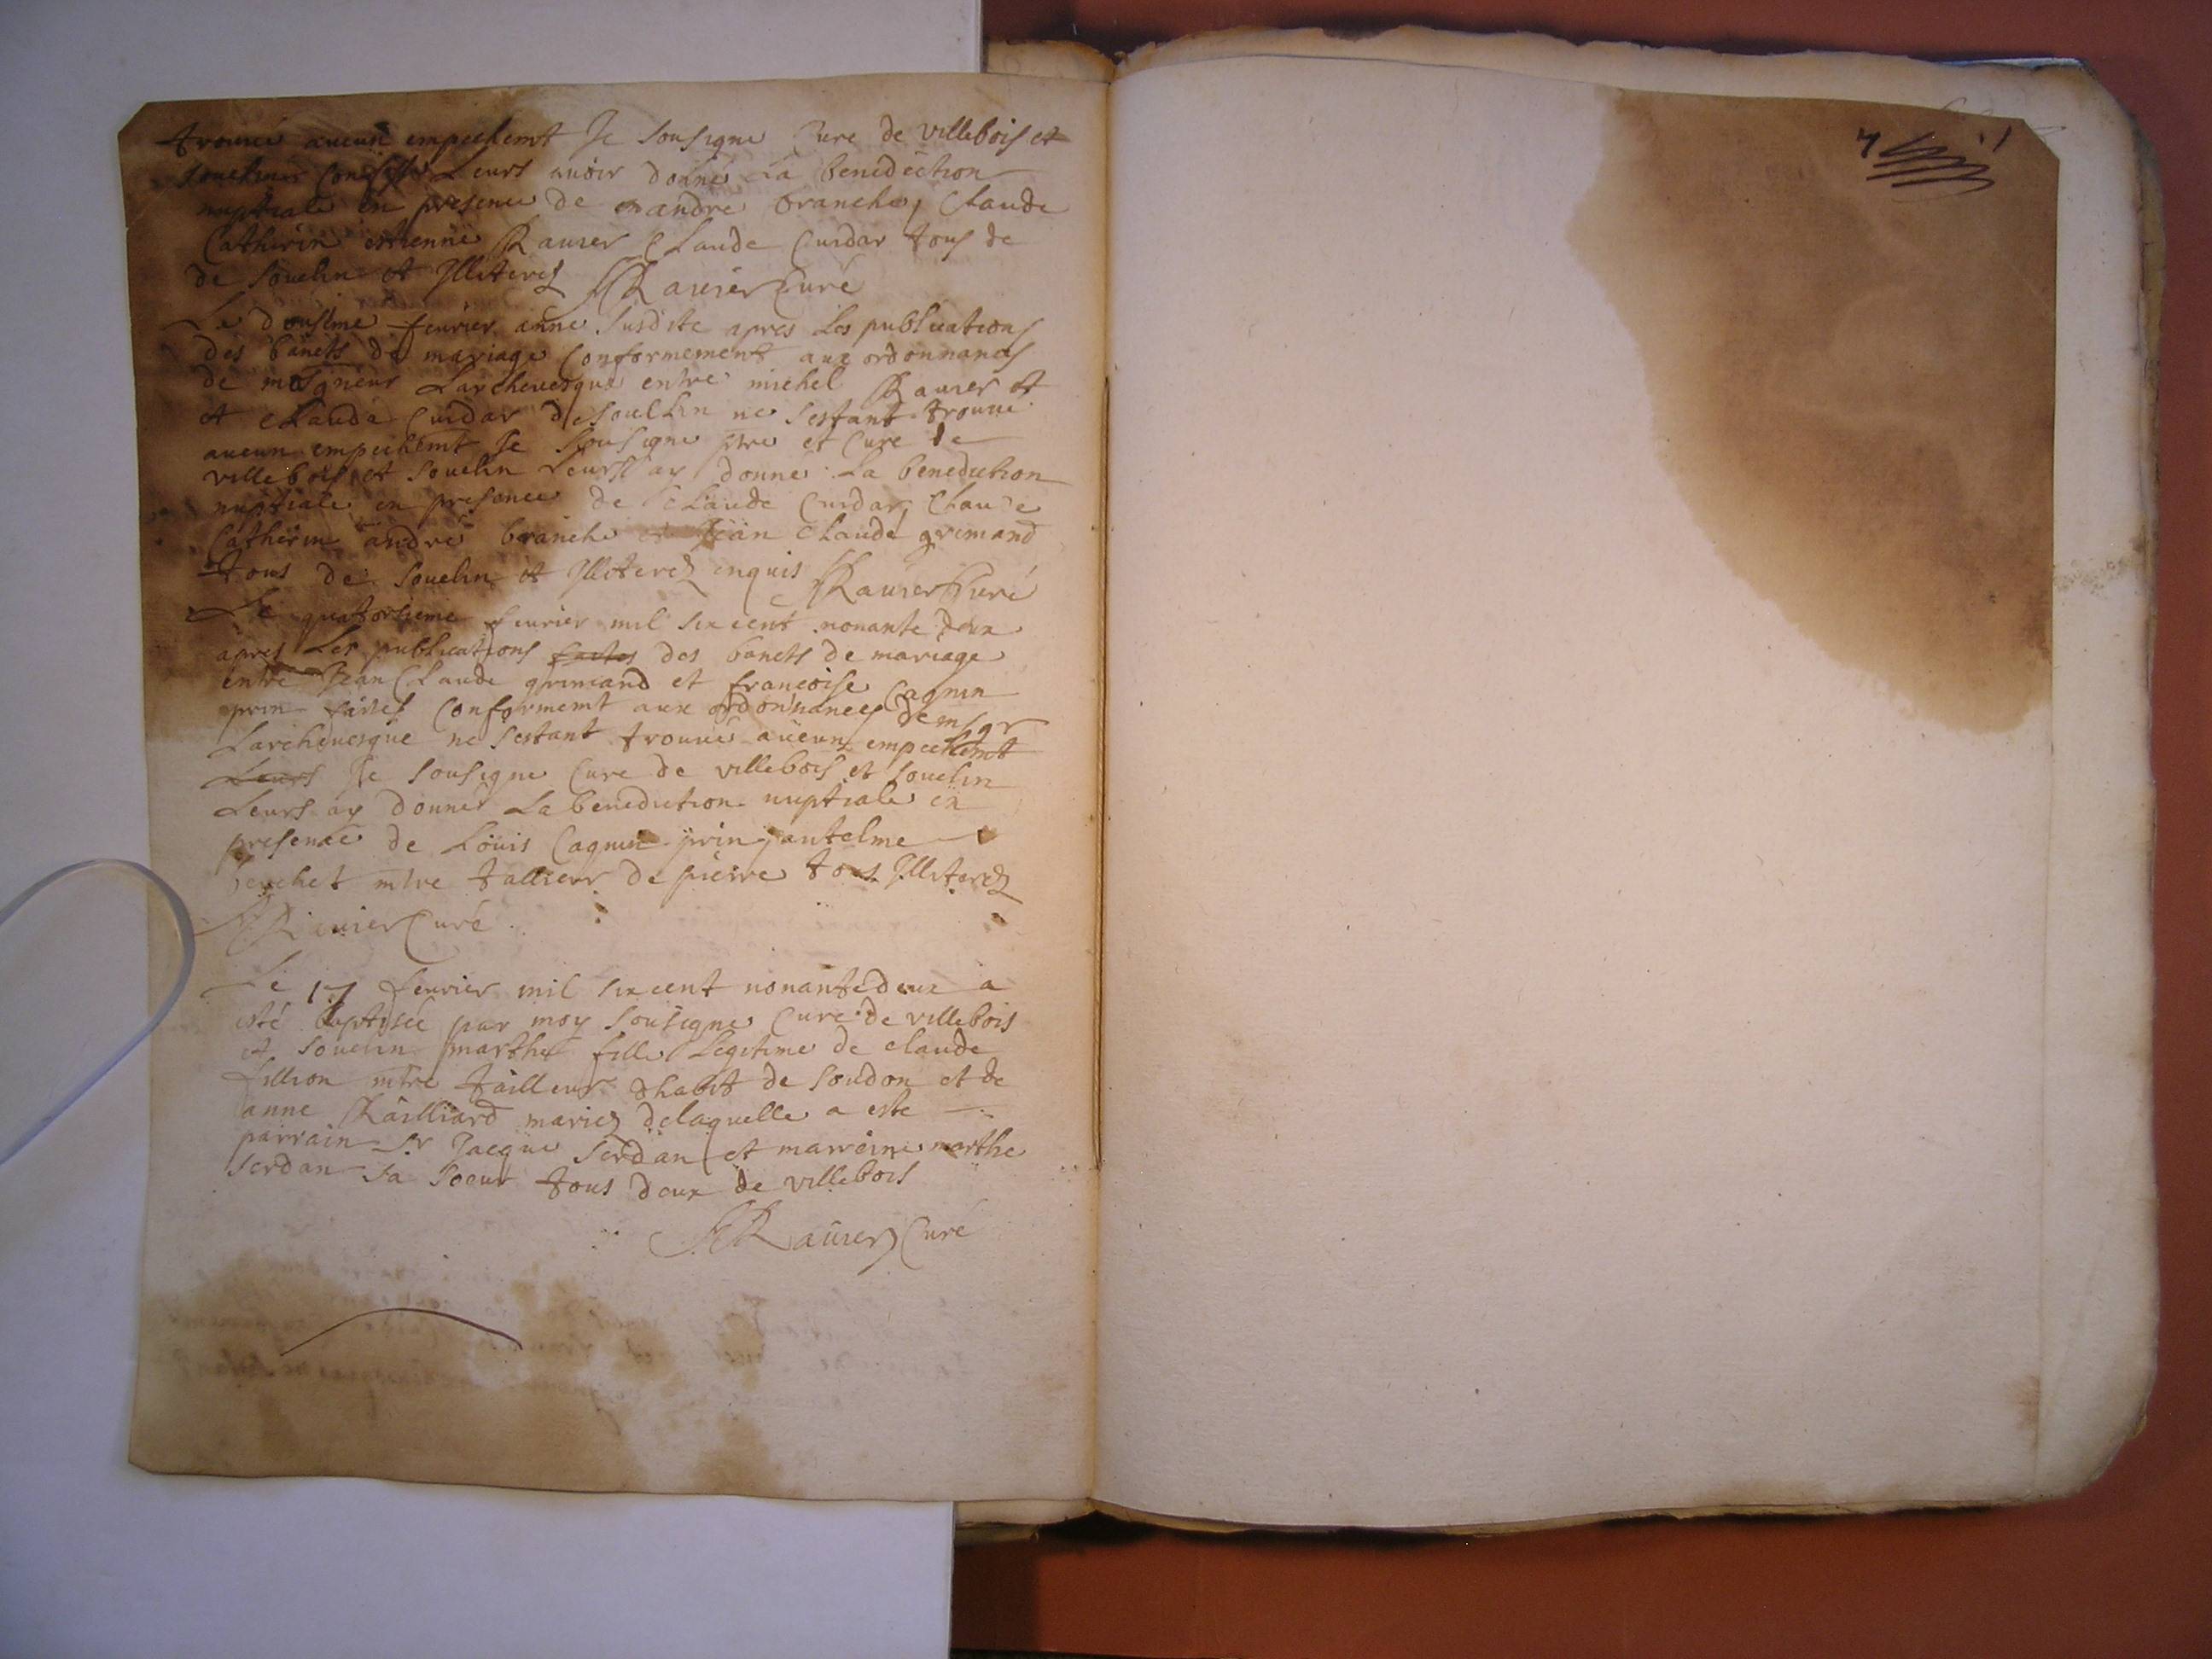 trouué aucun empechemt Je sousigne Cure de villebois et
souelin confesse Leurs auoir donné La benediction
nuptiale en presence de andre branche, Claude
Catherin estienne Rauier Claude Cuidar tous de
de souelin et Jlliterez Rauier Curé
Le dousime feurier anné susdite apres Les publications
des bancts de mariage Conformement aux ordonnances
de mosgneur Larcheuesque entre michel Rauier et
et Clauda Cuidar de souelin ne sestant trouué
aucun empechemt Je sousigne ptre et Cure de
villebois et souelin Leurs ay donné La benediction
nuptiale en presence de Claude Cuidar, Claude
Catherin andré branche et Jean Claude grimand
tous de souelin et Jlliterez enquis Rauier Curé
Le quatorsieme feurier mil six cent nonante deux
apres Les publications faites des bancts de mariage
entre Jean Claude grimand et francoise Cagnin
prin faites Conformemt aux ordonnances de msgr
Larcheuesque ne sestant trouué aucun empechemt
Leurs Je sousigne Cure de villebois et souelin
Leurs ay donné La benediction nuptiale en
presence de Louis Cagnin prin, antelme
mtre tallieur de pierre tous Jlliterez
Rauier Curé
Le 17 feurier mil six cent nonante deux a
esté baptisée par moy sousigne Cure de villebois
et souelin marthe fille Legitime de claude
fillion mtre tailleur dhabit de soudon et de
anne Railliard mariez delaquelle a este
parrain sr Jacque serdan et marreine marthe
serdan sa soeur tous deux de villebois
Rauier Curé
7